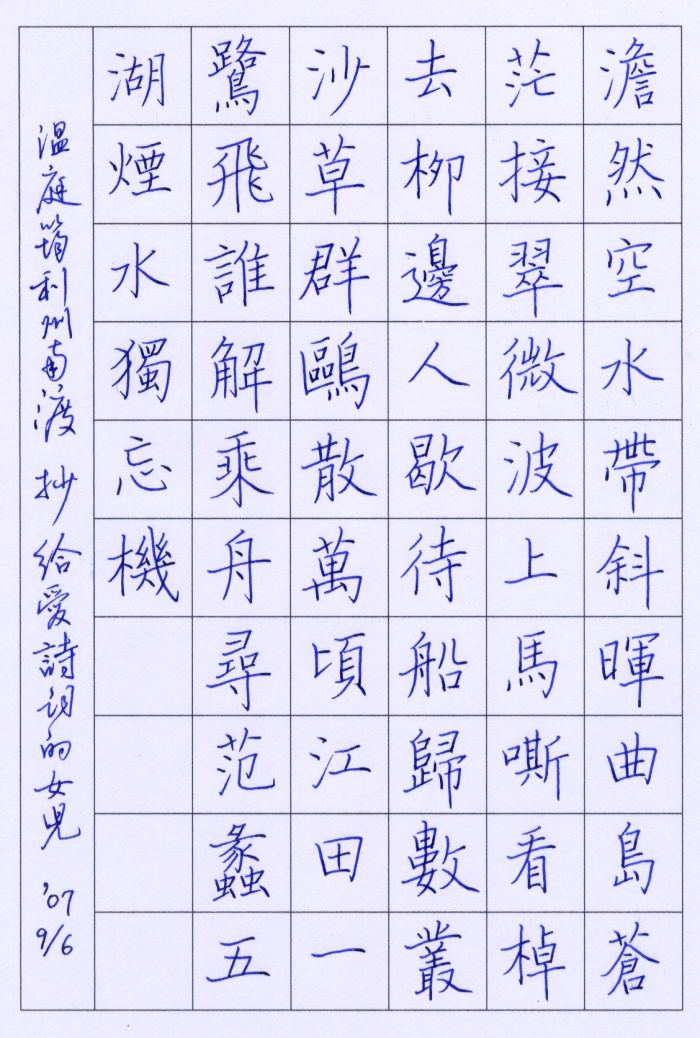 澹然空水帶斜暉曲島蒼
茫接翠微波上馬嘶看棹
去柳邊人歇待船歸數叢
沙草群鷗散萬頃江田一
鷺飛誰解乘舟尋范蠡五
湖煙水獨忘機
溫庭筠利州南渡 抄給愛詩詞的女兒 '07 9/6